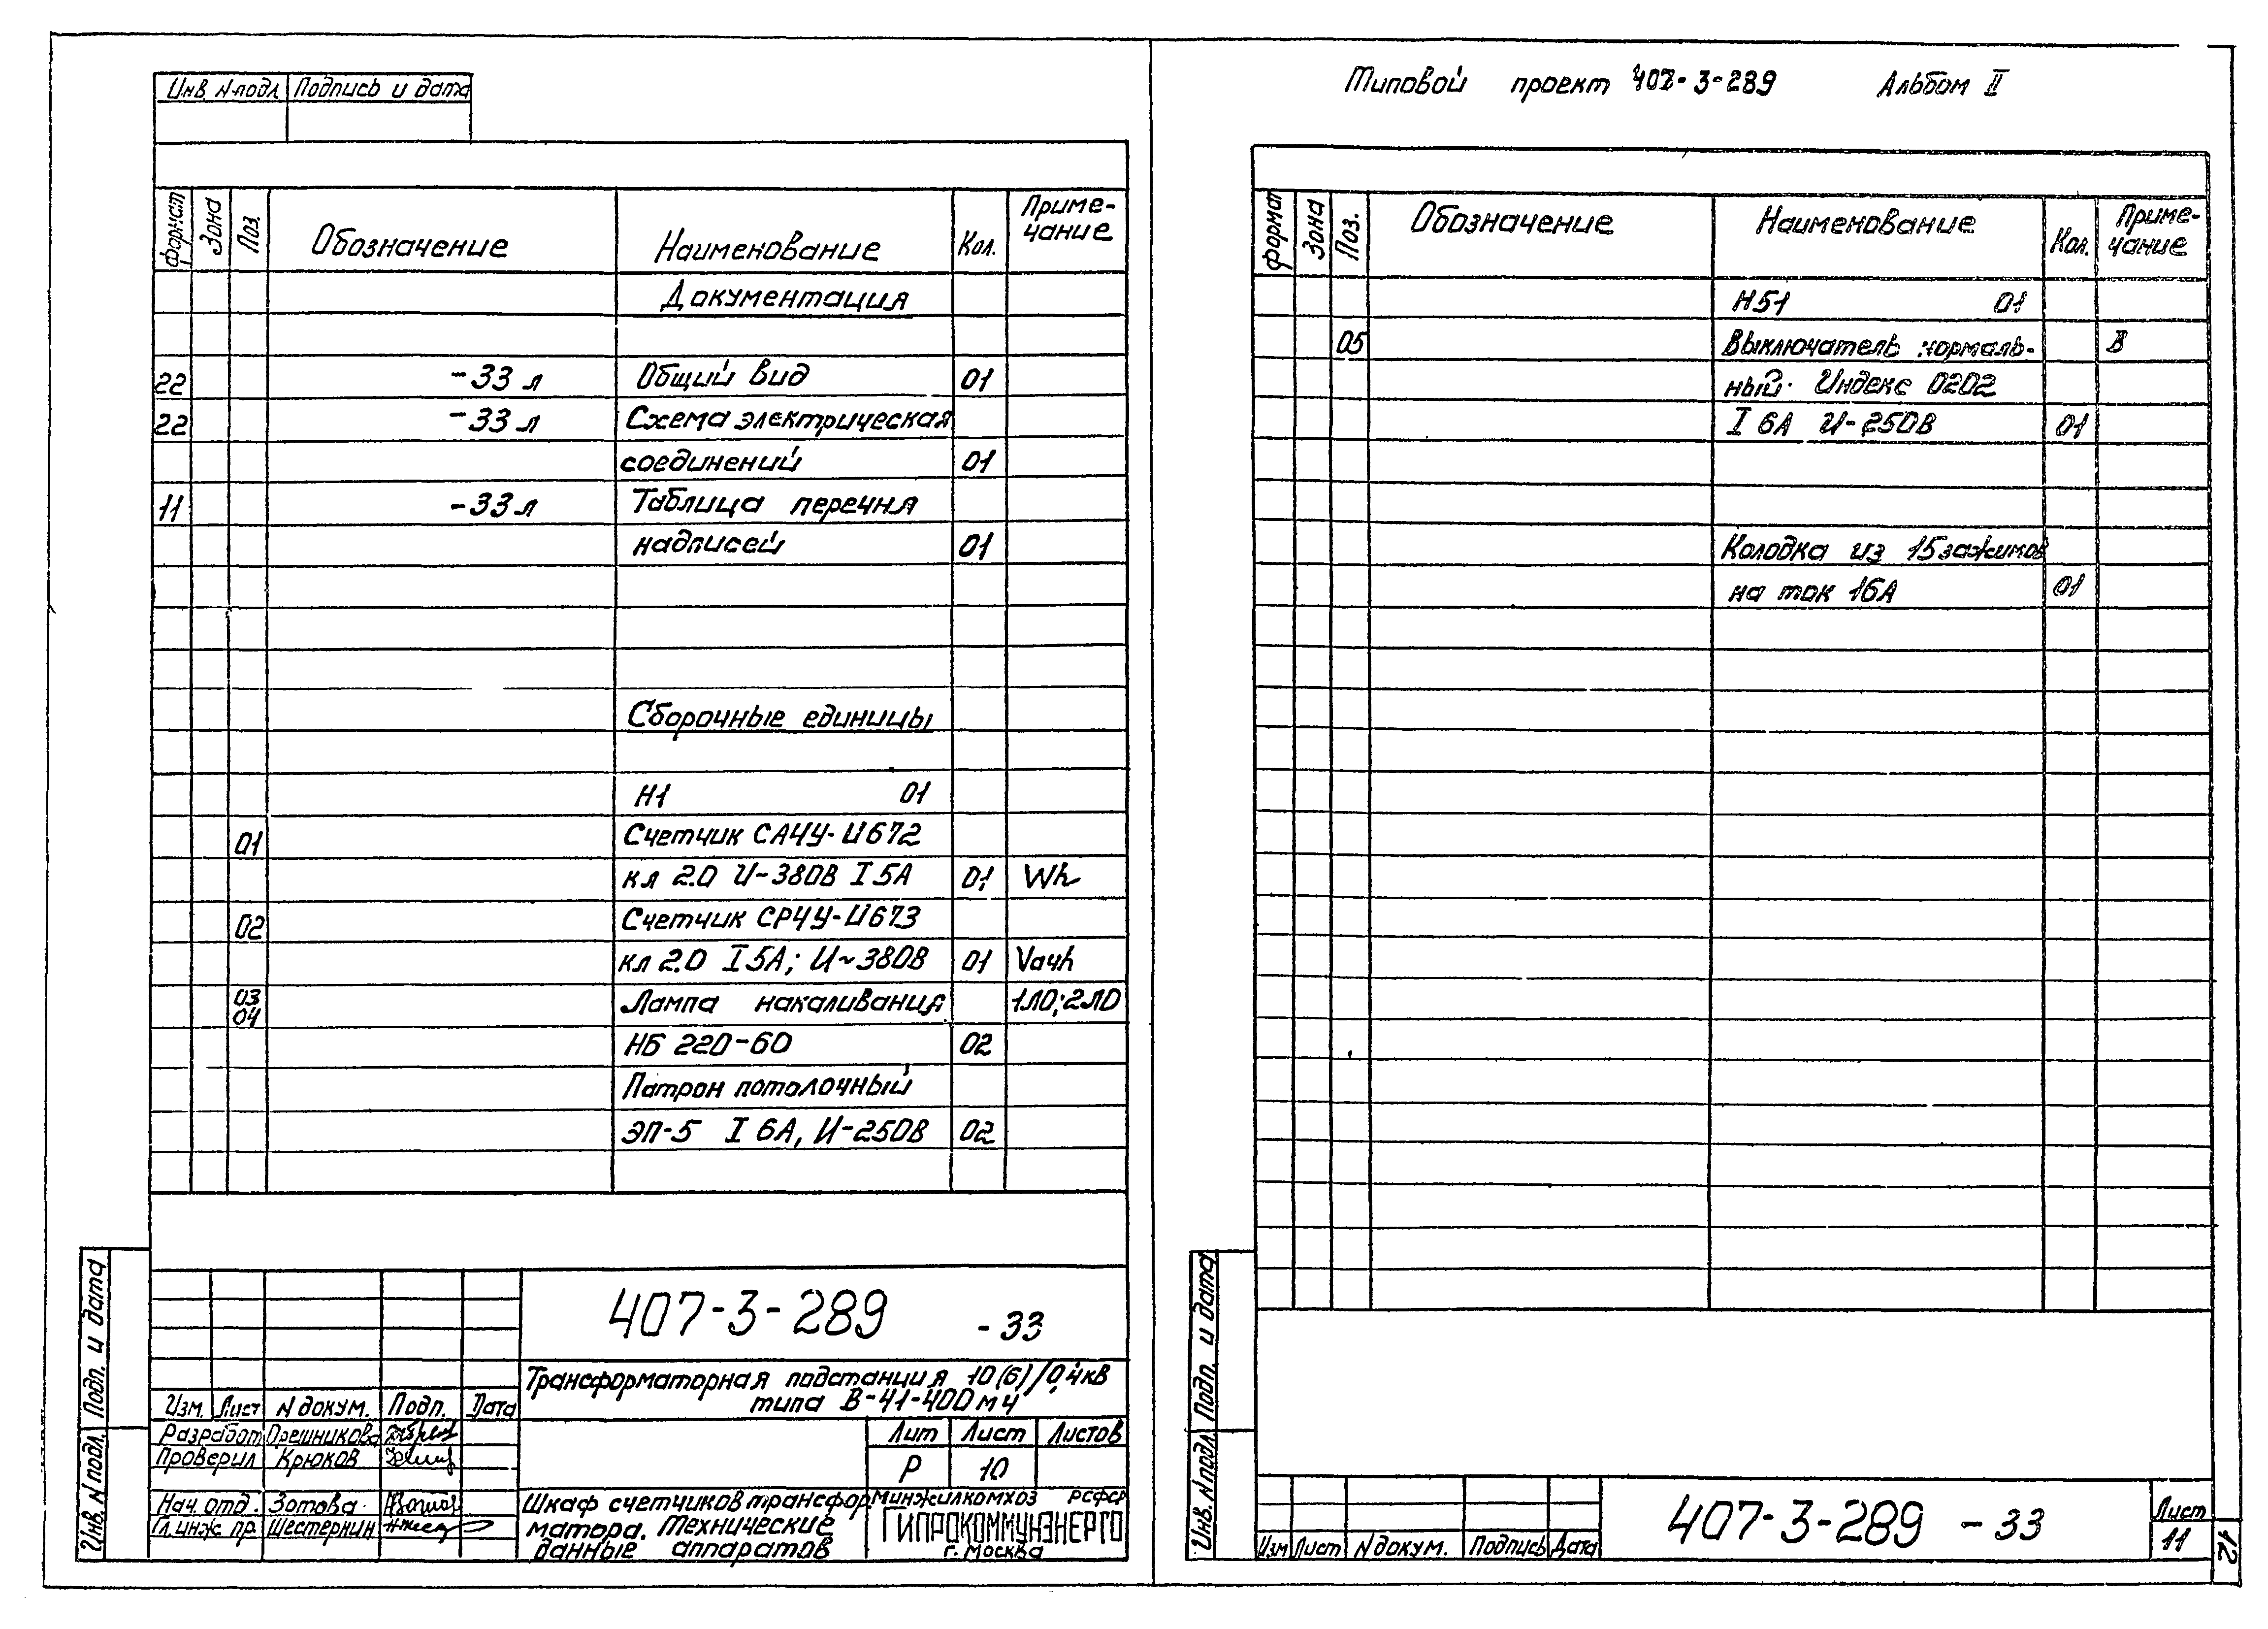 Инв. N подл. Подпись и дата
Формат Зона Поз. Обозначение Наименование Кол. Приме-
чание
Документация
22 -33 л Общий вид 01
22 -33 л Схема электрическая
соединений 01
11 -33 л Таблица перечня
надписей 01
Сборочные единицы
Н1 01
01 Счетчик СА4У-И672
кл 2.0 U-380В I 5А 01 Wh
02 Счетчик СР4У-И673
кл 2.0 I 5А; U~380В 01 Vaчh
03
04 Лампа накаливания 1ЛО; 2ЛО
НБ 220-60 02
Патрон потолочный
ЭП-5 I 6А, U-250В 02
Инв. N подл. Подп. и дата
407-3-289 -33
Трансформаторная подстанция 10(6)/0,4кВ
типа В-41-400 м4
Изм. Лист N докум. Подп. Дата
Разработ Орешникова
Проверил Крюков
Нач. отд. Зотова
Гл. инж. пр. Шестернин
Лит Лист Листов
Р 10
Шкаф счетчиков трансфор
матора. Технические
данные аппаратов
Минжилкомхоз РСФСР
ГИПРОКОММУНЭНЕРГО
г. Москва
Типовой проект 407-3-289 Альбом II
Формат Зона Поз. Обозначение Наименование Кол. Приме-
чание
Н51 01
05 Выключатель нормаль- В
ный. Индекс 0202
I 6А U-250В 01
Колодка из 15 зажимов
на ток 16А 01
Инв. N подл. Подп. и дата
Изм Лист N докум. Подпись Дата
407-3-289 -33
Лист
11
12